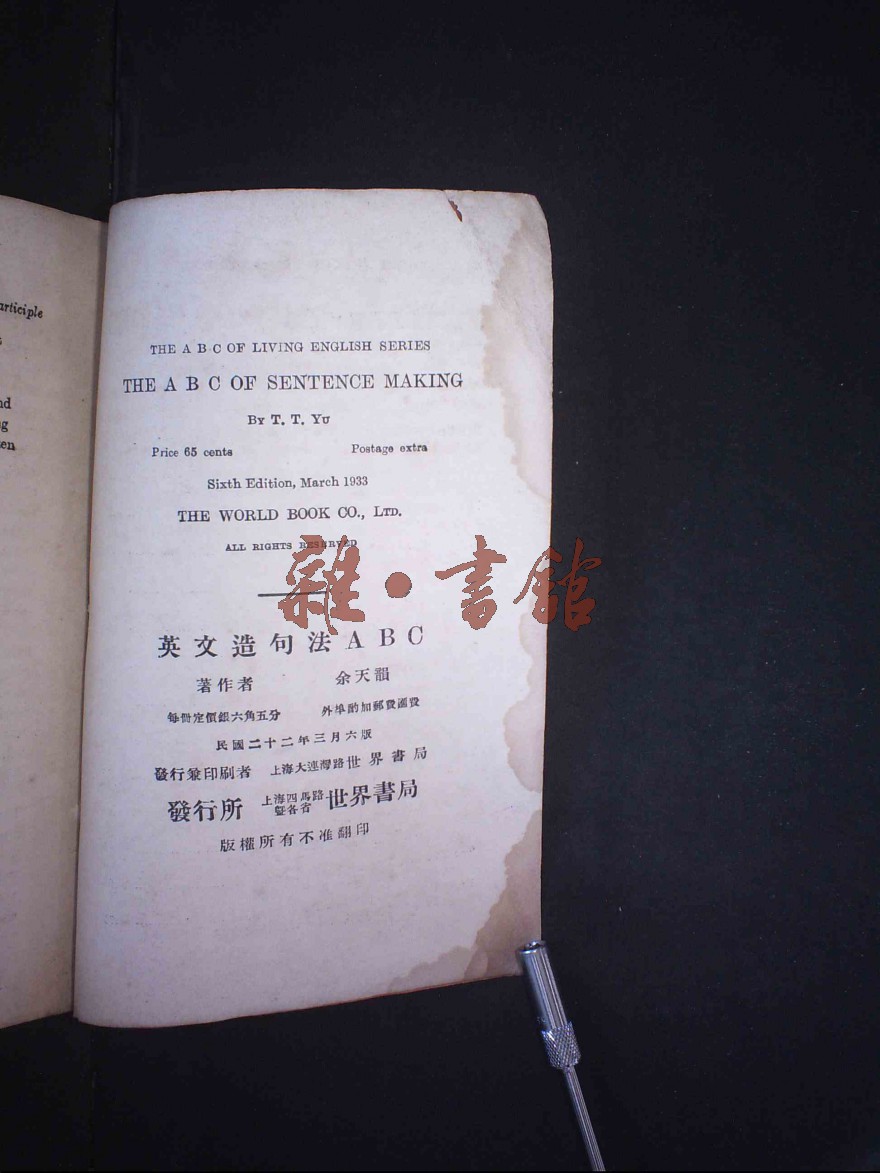 articiple
nd
THE A B C OF LIVING ENGLISH SERIES
THE A B C OF SENTENCE MAKING
BY T. T. YU
Price 65 cents Postage extra
Sixth Edition, March 1933
THE WORLD BOOK CO., LTD.
ALL RIGHTS RESERVED
雜·書館
英文造句法ABC
著作者 余天韻
每冊定價銀六角五分 外埠酌加郵費匯費
民國二十二年三月六版
發行兼印刷者 上海大連灣路世界書局
發行所 上海四馬路暨各省 世界書局
版權所有不准翻印